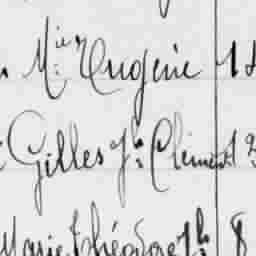 Mie Eugène 18
Gilles Jh Clément
Marie Théodore Jh 8